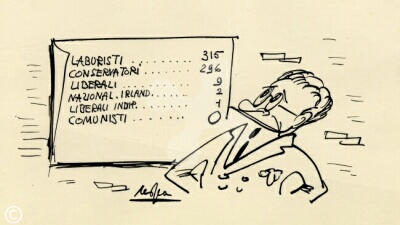 LABURISTI ............ 315
CONSERVATORI ....... 296
LIBERALI ............ 9
NAZIONAL. IRLAND. .... 2
LIBERALI INDIP. ...... 1
COMUNISTI ........ 0
©